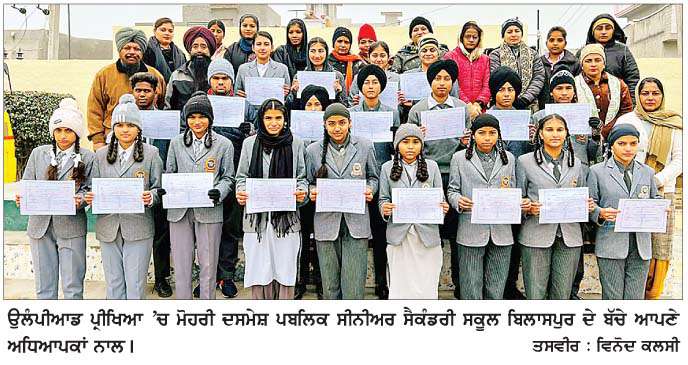 ਉਲੰਪੀਆਡ ਪ੍ਰੀਖਿਆ ’ਚ ਮੋਹਰੀ ਦਸਮੇਸ਼ ਪਬਲਿਕ ਸੀਨੀਅਰ ਸੈਕੰਡਰੀ ਸਕੂਲ ਬਿਲਾਸਪੁਰ ਦੇ ਬੱਚੇ ਆਪਣੇ
ਅਧਿਆਪਕਾਂ ਨਾਲ। ਤਸਵੀਰ : ਵਿਨੋਦ ਕਲਸੀ